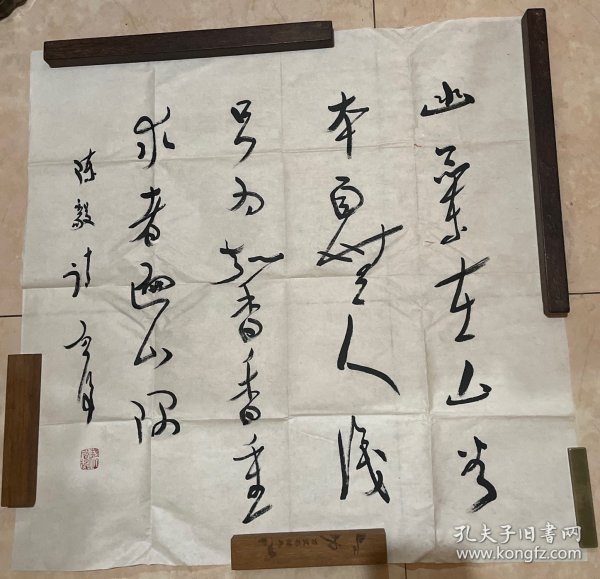 幽蘭在山谷
本自無人識
只为馨香重
求者遍山隅
陳毅詩
孔夫子旧书网
www.kongfz.com